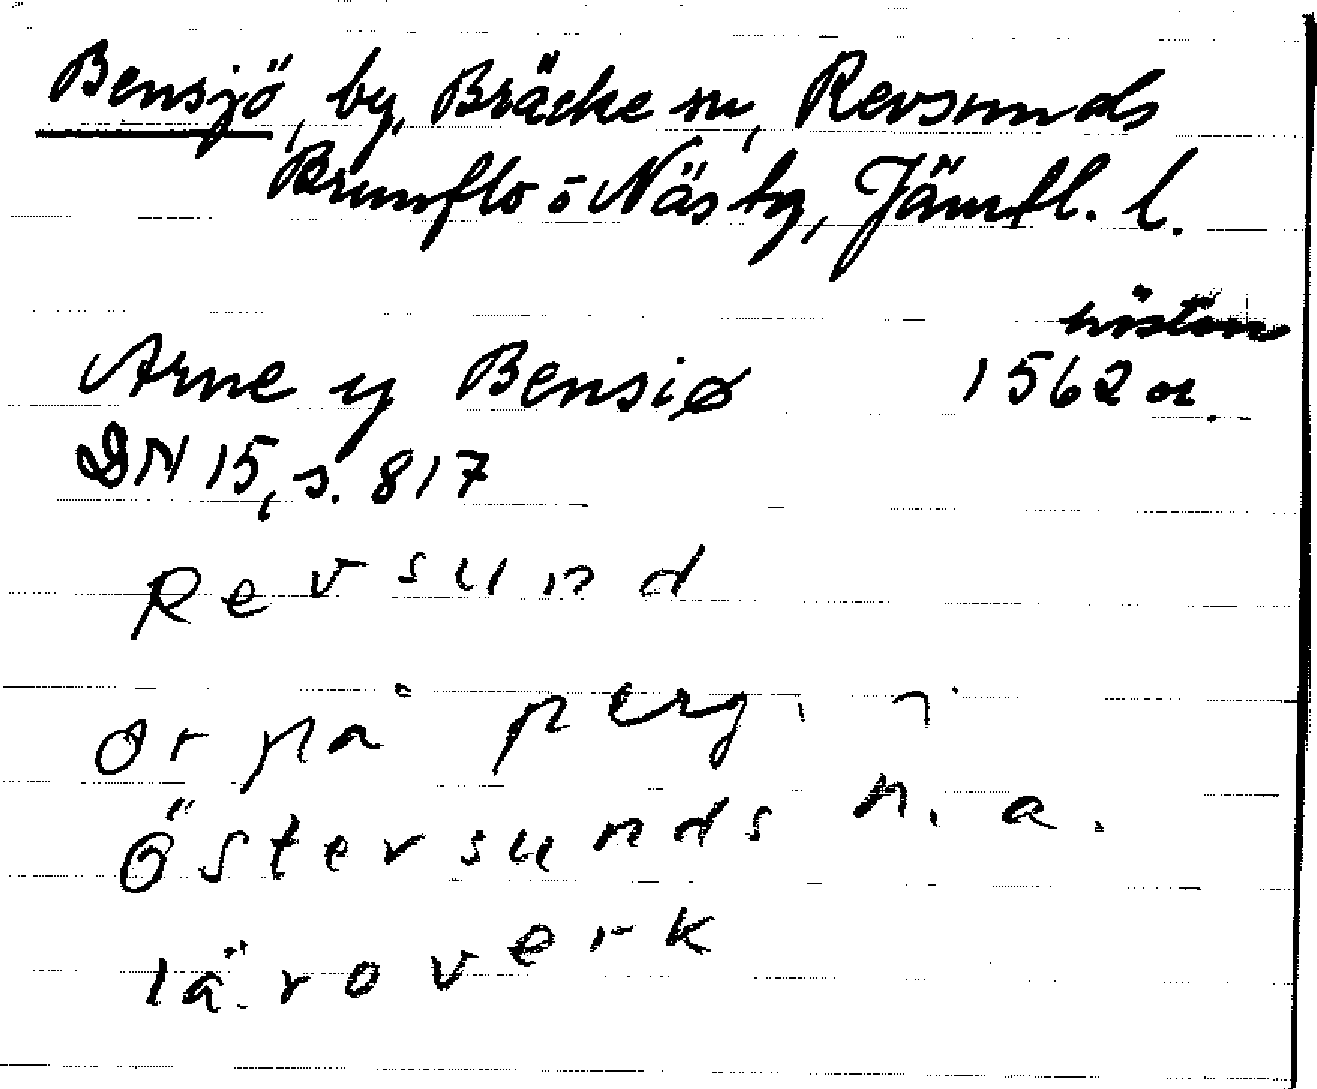 Bensjö, by, Bräcke sn, Revsunds
Brunflo o Näs tg, Jämtl. l.
hösten
Arne y Bensiø 1562 or.
DN 15, s. 817
Revsund
Or på perg. i
Östersunds h. a.
läroverk